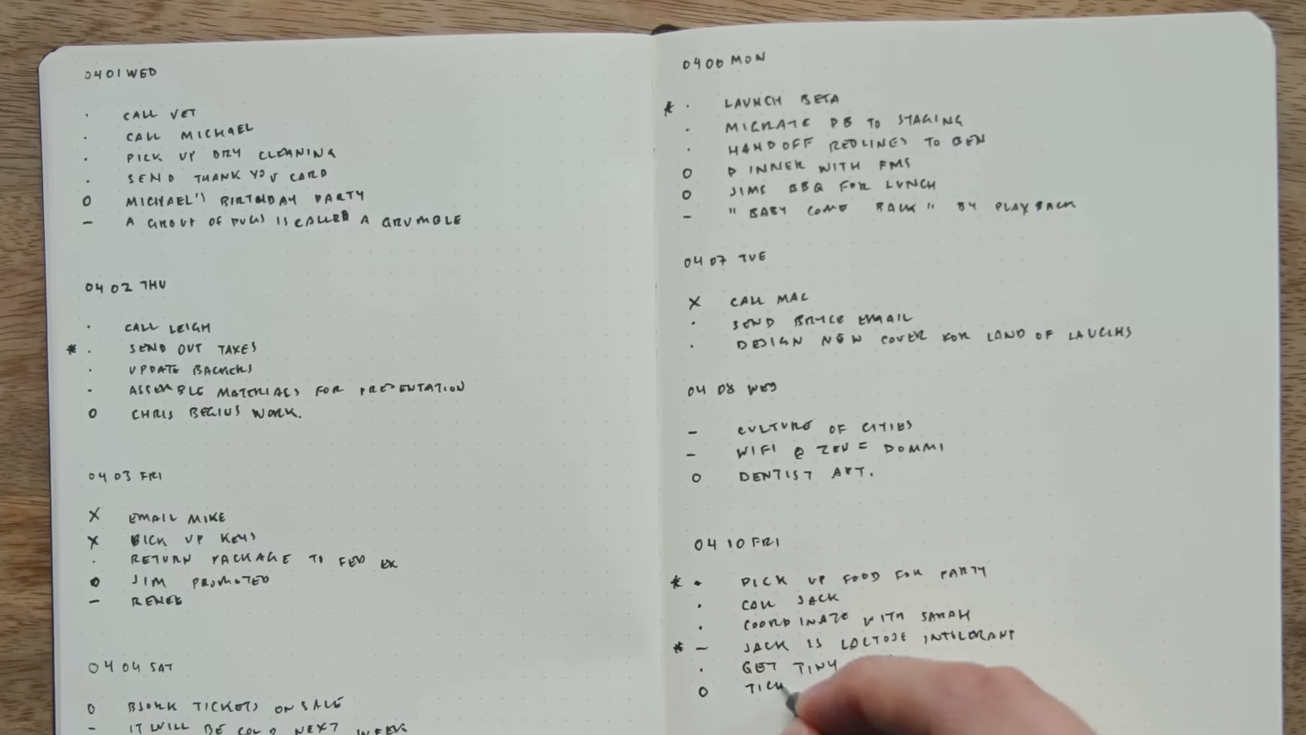 0401 WED
· CALL VET
· CALL MICHAEL
· PICK UP DRY CLEANING
· SEND THANK YOU CARD
O MICHAEL'S BIRTHDAY PARTY
– A GROUP OF PUGS IS CALLED A GRUMBLE
04 02 THU
· CALL LEIGH
* · SEND OUT TAXES
· UPDATE BACKERS
· ASSEMBLE MATERIALS FOR PRESENTATION
O CHRIS BEGINS WORK.
04 03 FRI
X EMAIL MIKE
X PICK UP KEYS
· RETURN PACKAGE TO FED EX
O JIM PROMOTED
– RENEE
04 04 SAT
O BJORK TICKETS ON SALE
– IT WILL BE COLD NEXT WEEK
0406 MON
* · LAUNCH BETA
· MIGRATE DB TO STAGING
· HANDOFF REDLINES TO BEN
O DINNER WITH FMS
O JIMS BBQ FOR LUNCH
– "BABY COME BACK" BY PLAYBACK
04 07 TUE
X CALL MAC
· SEND BRYCE EMAIL
· DESIGN NEW COVER FOR LAND OF LAUGHS
04 08 WED
– CULTURE OF CITIES
– WIFI @ ZEV = DOMMI
O DENTIST APT.
04 10 FRI
* · PICK UP FOOD FOR PARTY
· CALL JACK
· COORDINATE WITH SARAH
* – JACK IS LACTOSE INTOLERANT
· GET TINY
O TICK